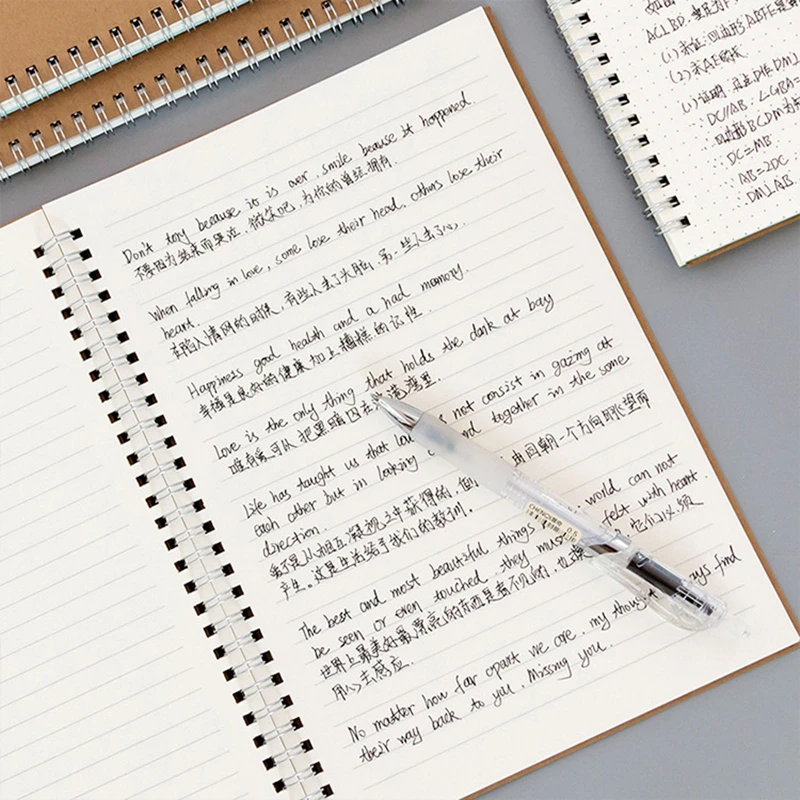 Don't tory because it is over, smile because it happened.
不要因为结束而哭泣，微笑吧，为你的曾经拥有.
When falling in love, some lose their head, others lose their
heart.
在陷入情网的时候，有些人丢了头脑，另一些人丢了心.
Happiness good health and a had memory.
幸福是良好的健康加上糟糕的记性.
Love is the only thing that holds the dark at bay
唯有爱可以把黑暗囚在 港湾里.
Life has taught us that not consist in gazing at
each other but in looking together in the same
direction.
爱不是从相互凝视之中获得的, 由同朝一个方向眺望而
产生。这是生活给予我们的教训。
The best and most beautiful things world can not
be seen or even touched, they must felt with heart.
世界上最美好最漂亮的东西是看不见的, 也 它们必须
用心去感应.
No matter how far apart we are, my thought find
their way back to you. Missing you.
ACLBD,
(1) 求证:四边形ABFE是
(2) 求AE的长
(1) 证明:
DC//AB
四边形BCDM为
DC=MB
AB=2DC
DM⊥AB